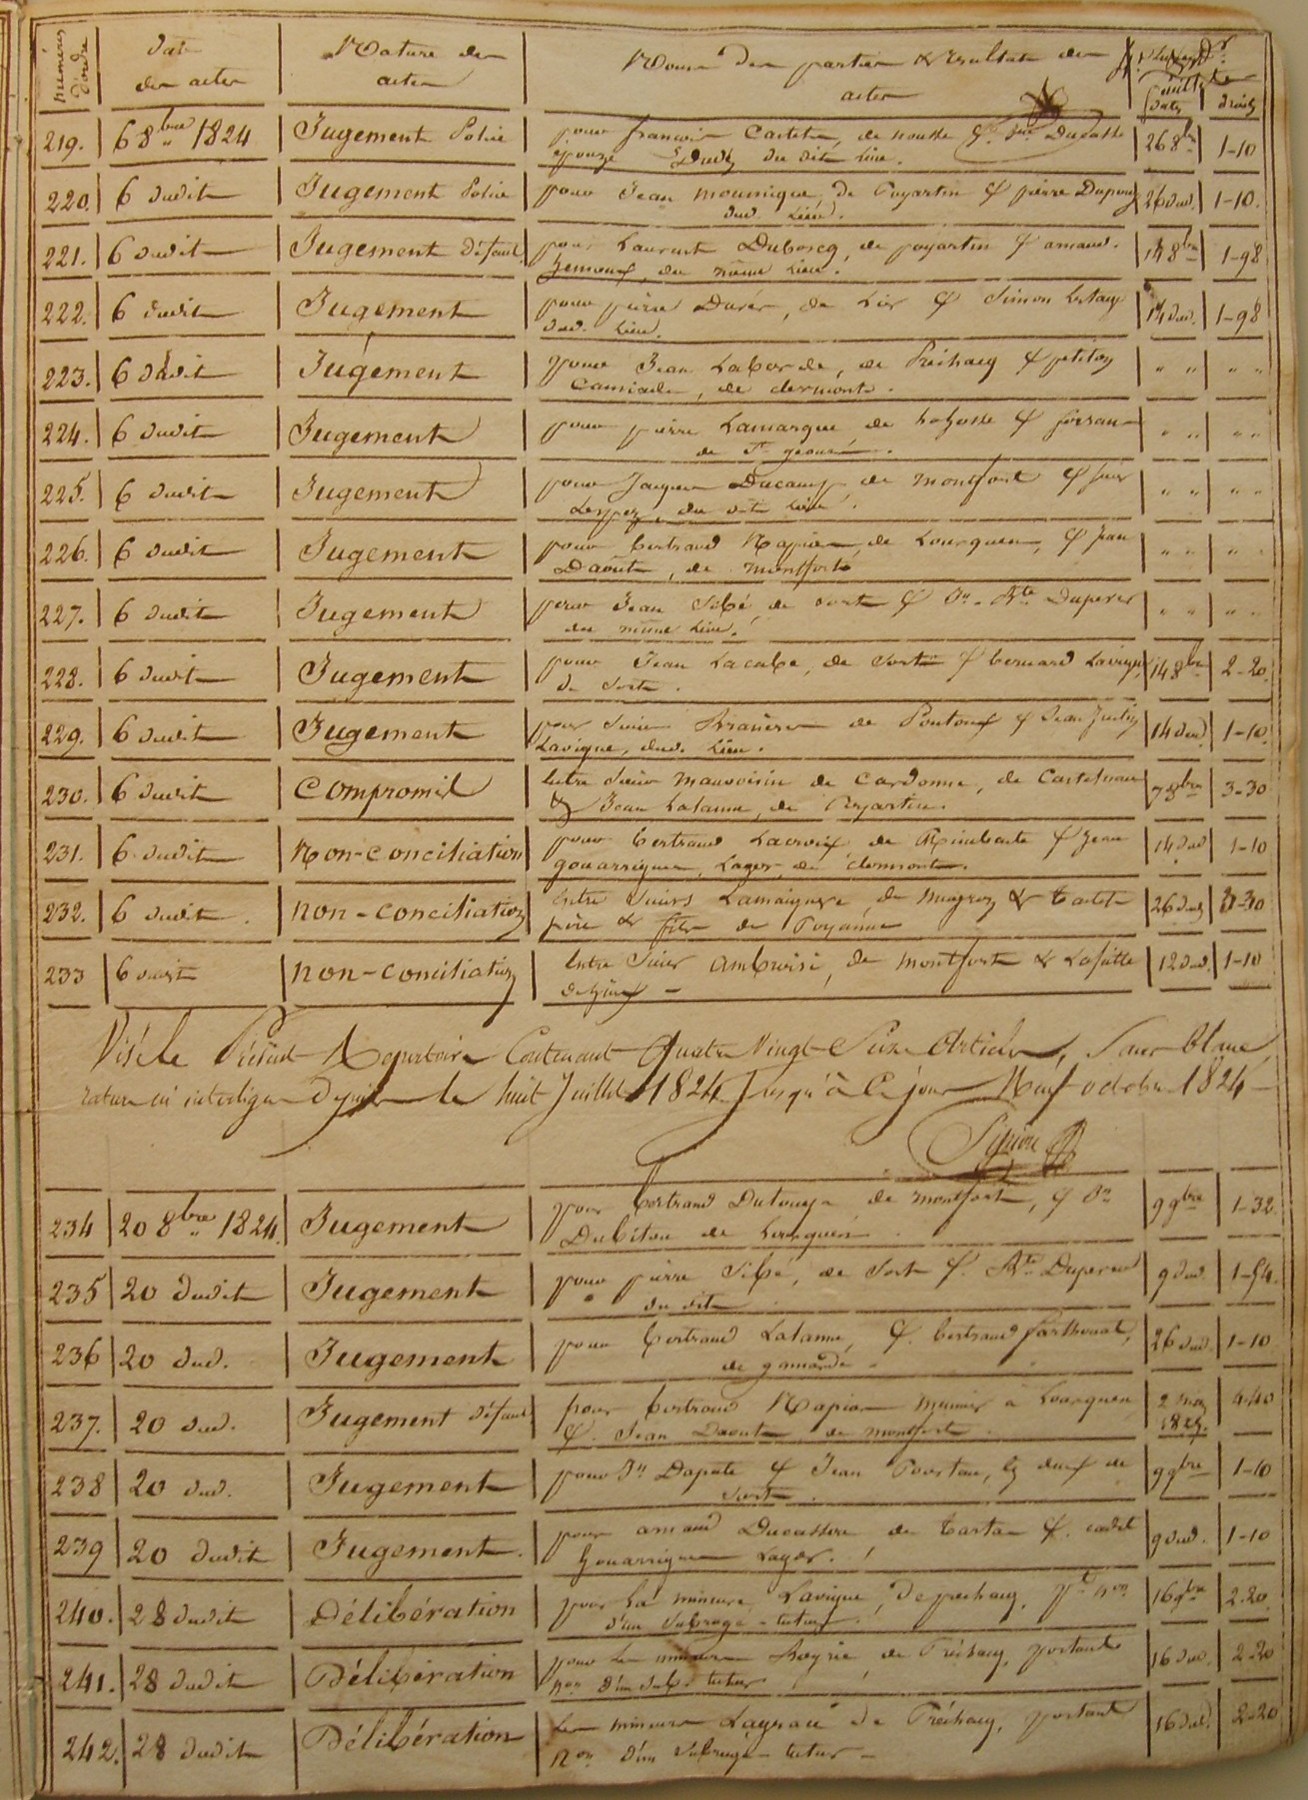 numéros d'ordre
Date des actes
Nature des actes
Noms des parties & résultats des actes
Dates
droits
219. 6 8bre 1824 Jugement Police pour françois Castets, de nousse Ducasse 26 8bre 1-10
épouze Dud. du dit lieu.
220. 6 dudit Jugement Police pour Jean mounique, de Poyartin & pierre Dupouy 26 dud. 1-10.
dud. lieu.
221. 6 dudit Jugement défaut pour Laurent Duboscq, de poyartin & arnaud. 14 8bre 1-98
du même lieu.
222. 6 dudit Jugement pour pierre Durér, de & Simon 14 dud. 1-98
dud. lieu.
223. 6 dudit Jugement pour Jean Laborde, de Préchacq & petiton " " " "
Camiade, de clermont.
224. 6 dudit Jugement pour pierre Lamarque de & " " " "
de St geours.
225. 6 dudit Jugement pour Jacques Ducamp, de montfort & " " " "
Lespez, du dit lieu.
226. 6 dudit Jugement pour bertrand Napias, de Lourquen, & Jean " " " "
Daoute, de montfort
227. 6 dudit Jugement pour Jean Sibé de sort & Bte Duperer " " " "
du même lieu.
228. 6 dudit Jugement pour Jean Lacabe, de Sort & bernard Lavigne 14 8bre 2-20.
de Sort.
229. 6 dudit Jugement pour Sieur de Pontonx & Jean 14 dud. 1-10.
Lavigne, dud. lieu.
230. 6 dudit Compromis Entre Sieur mauvoisin de Cardonne, de Castelnau 7 9bre 3-30
& Jean Lalanne, de Poyartin.
231. 6 dudit Non-conciliation pour bertrand Lacroix de Rimbente & Jean 14 dud 1-10
gouarrigues, Lager, de clermont.
232. 6 dudit. non-conciliation Entre Sieurs Lamaignere, de mugron & Castets 26 dud 3-30
père & fils de Poyanne
233 6 dudit non-conciliation Entre Sieur ambroise, de montfort & Lafitte 12 dud. 1-10
Visé le Présent Repertoire Contenant Quatre Vingt Seize Articles, Sans blanc,
rature ni interligne Depuis le huit Juillet 1824 Jusqu'à Ce jour Neuf octobre 1824
234 20 8bre 1824. Jugement pour bertrand Dutouya de montfort, & 9 9bre 1-32.
Dubitou de Lourquen
235 20 dudit Jugement pour pierre Sibé, de Sort & Bte Duperer 9 dud 1-54.
du dit
236 20 dud. Jugement pour bertrand Lalanne, & bertrand Parthouat, 26 dud. 1-10
de gamarde
237. 20 dud. Jugement défaut pour bertrand Napias meunier à Lourquen 2 mars 1825. 4-40
& Jean Daoute, de montfort
238 20 dud. Jugement pour Dapate & Jean Pourtau, les deux de 9 9bre 1-10
Sort.
239 20 dudit Jugement. pour arnaud Ducasson de tartas & cadet 9 dud. 1-10
gouarrigues Lager.
240. 28 dudit Délibération pour La mineure Lavigne, De prechacq, pt non 16 9bre 2-20.
d'un Subrogé-tuteur.
241. 28 dudit Délibération pour Les mineurs de Préchacq, portant 16 dud. 2-20
non d'un subé tuteur
242. 28 dudit Délibération Les mineurs de Préchacq, portant 16 dud. 2-20
non d'un Subrogé-tuteur